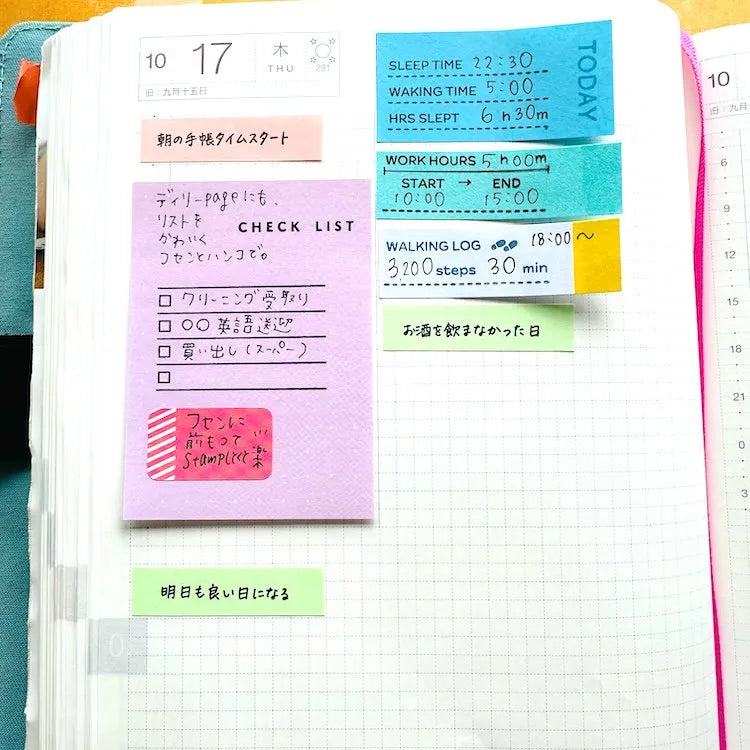 10 17 木
THU 291
旧:九月十五日
朝の手帳タイムスタート
ディリーpageにも、
リストを
かわいく
フセンとハンコで。
CHECK LIST
クリーニング受取り
○○英語送迎
買い出し(スーパー)
フセンに
前もって
Stampしとくと
楽
明日も良い日になる
TODAY
SLEEP TIME 22:30
WAKING TIME 5:00
HRS SLEPT 6h30m
WORK HOURS 5h00m
START → END
10:00 15:00
WALKING LOG 18:00～
3200 steps 30 min
お酒を飲まなかった日
0
10
旧
6
9
12
15
18
21
0
3